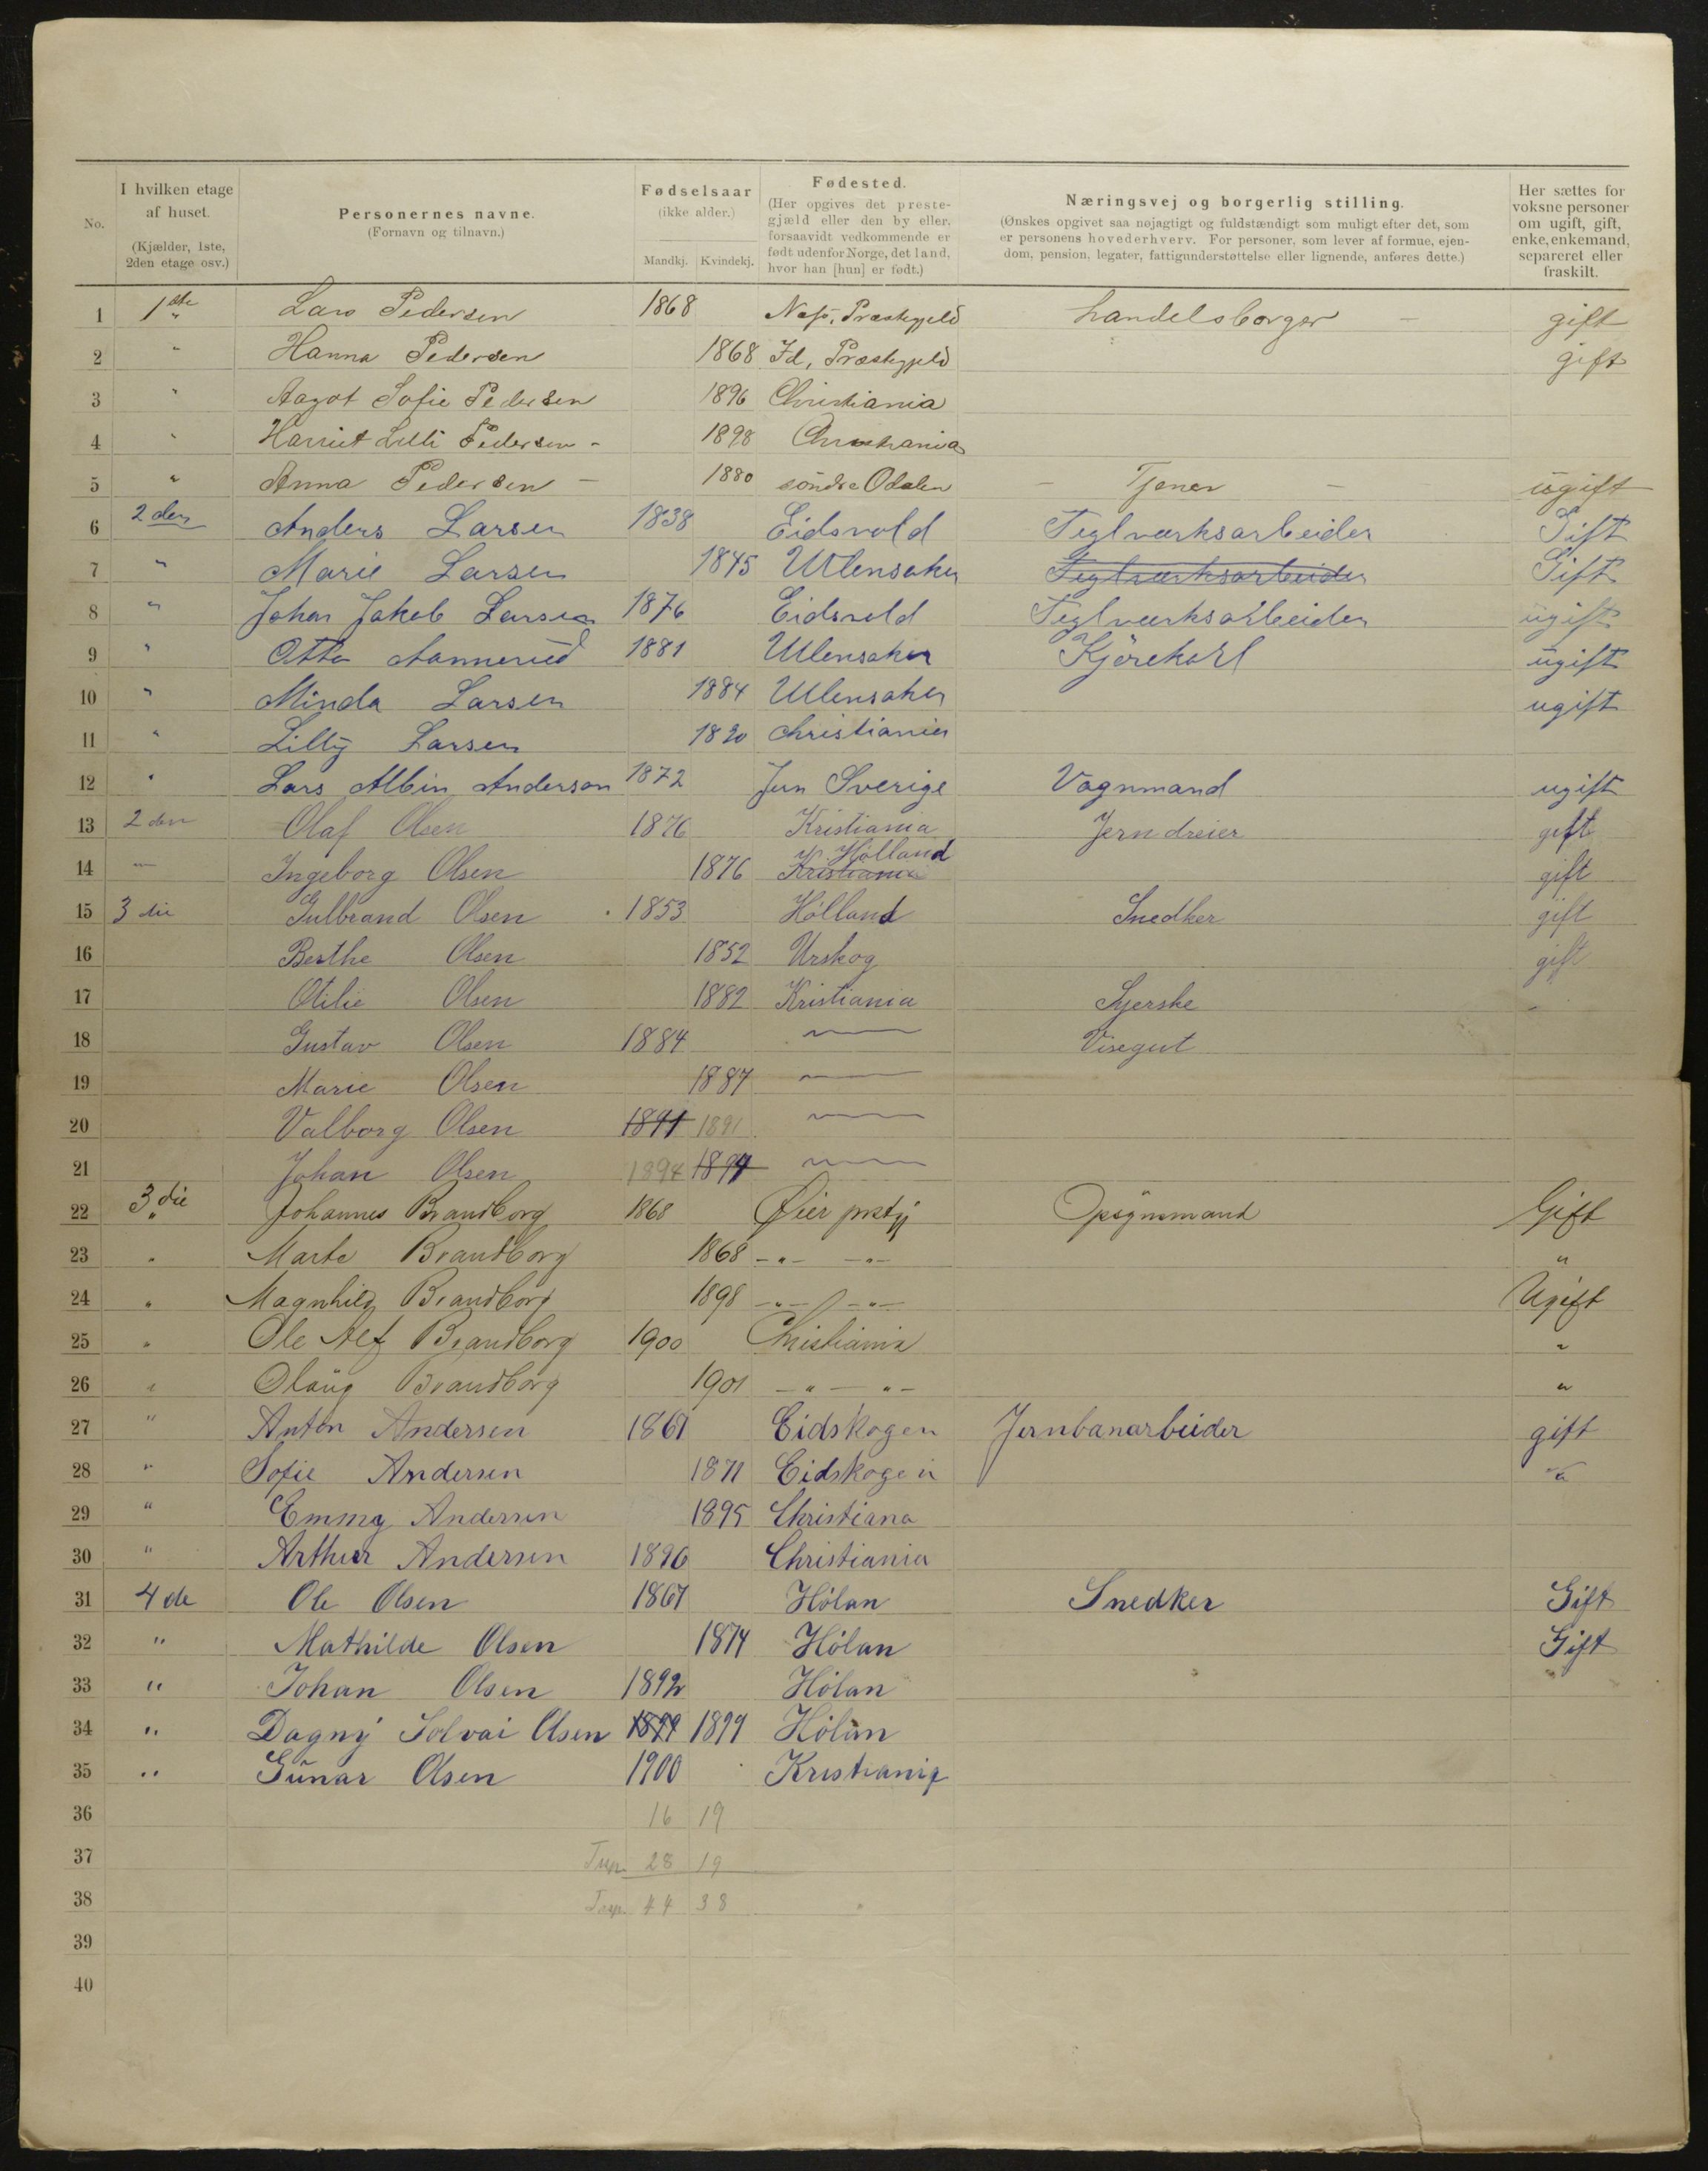 No.
I hvilken etage af huset.
(Kjælder, 1ste, 2den etage osv.)
Personernes navne.
(Fornavn og tilnavn.)
Fødselsaar
(ikke alder.)
Mandkj. Kvindekj.
Fødested.
(Her opgives det prestegjæld eller den by eller, forsaavidt vedkommende er født udenfor Norge, det land, hvor han [hun] er født.)
Næringsvej og borgerlig stilling.
(Ønskes opgivet saa nøjagtigt og fuldstændigt som muligt efter det, som er personens hovederhverv. For personer, som lever af formue, ejendom, pension, legater, fattigunderstøttelse eller lignende, anføres dette.)
Her sættes for voksne personer om ugift, gift, enke, enkemand, separeret eller fraskilt.
1 1ste Lars Pedersen 1868 Næs, Præstegjeld handelsborger - gift
2 " Hanna Pedersen 1868 Id, Præstegjeld gift
3 " Aagot Sofie Pedersen 1896 Christiania
4 " Harriet Lilli Pedersen - 1898 Christiania
5 " Anna Pedersen - 1880 söndre Odalen - Tjener - ugift
6 2den Anders Larsen 1838 Eidsvold Teglværksarbeider Gift
7 " Marie Larsen 1845 Ullensaker Teglværksarbeider Gift
8 " Johan Jakob Larsen 1876 Eidsvold Teglværksarbeider ugift
9 " Otto Aannerud 1881 Ullensaker Kjørekarl ugift
10 " Minda Larsen 1884 Ullensaker ugift
11 " Lilly Larsen Christiania
12 " Lars Albin Anderson 1872 Sverige Vognmand ugift
13 2den Olaf Olsen 1876 Kristiania Jerndreier gift
14 — Ingeborg Olsen 1876 Kristiania Hølland gift
15 3die Gulbrand Olsen 1853 Hølland Snedker gift
16 Berthe Olsen 1852 Urskog gift
17 Otilie Olsen 1882 Kristiania Syerske -
18 Gustav Olsen 1884 — Visegut
19 Marie Olsen 1887 —
20 Valborg Olsen 1891 1891 —
21 Johan Olsen 1894 1894 —
22 3die Johannes Brandborg 1868 Øier prstgj Opsynsmand Gift
23 " Marte Brandborg 1868 -"- -"- "
24 " Magnhild Brandborg 1898 -"- -"- Ugift
25 " Ole Alf Brandborg 1900 Christiania "
26 " Olaüg Brandborg 1901 -"- "- "
27 " Anton Andersen 1867 Eidskogen Jernbanarbeider gift
28 " Sofie Andersen 1871 Eidskogen "
29 " Emmy Andersen 1895 Christiana
30 " Arthur Andersen 1896 Christiania
31 4de Ole Olsen 1867 Hölan Snedker Gift
32 " Mathilde Olsen 1874 Hölan Gift
33 " Johan Olsen 1892 Hölan
34 " Dagny Solvai Olsen 1899 1899 Hölan
35 " Günar Olsen 1900 Kristiania
36 16 19
37 28 19
38 44 38
39
40